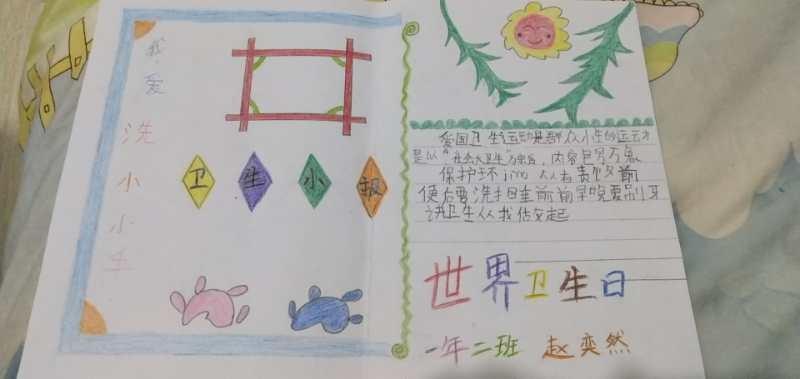 我爱洗小小手
卫生小报
爱国卫生运动是群众小生的运动
是以"社会大卫生"为宗旨,内容包罗万象
保护环 人人有责饭前
便后要洗手 前早晚要刷牙
讲卫生从我做起
世界卫生日
一年二班 赵奕然